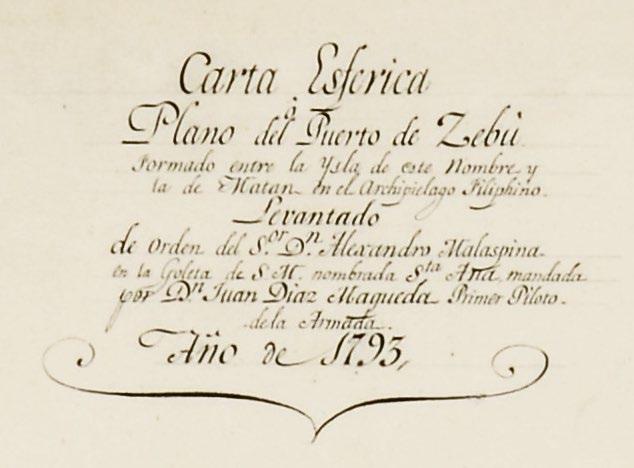 Carta Esferica
ò
Plano del Puerto de Zebù
Formado entre la Ysla de este Nombre y
la de Matan en el Archipielago Filiphino.
Levantado
de Orden del S.or D.n Alexandro Malaspina
en la Goleta de S. M. nombrada S.ta Ana, mandada
por D.n Juan Diaz Maqueda Primer Piloto
de la Armada.
Año de 1793,